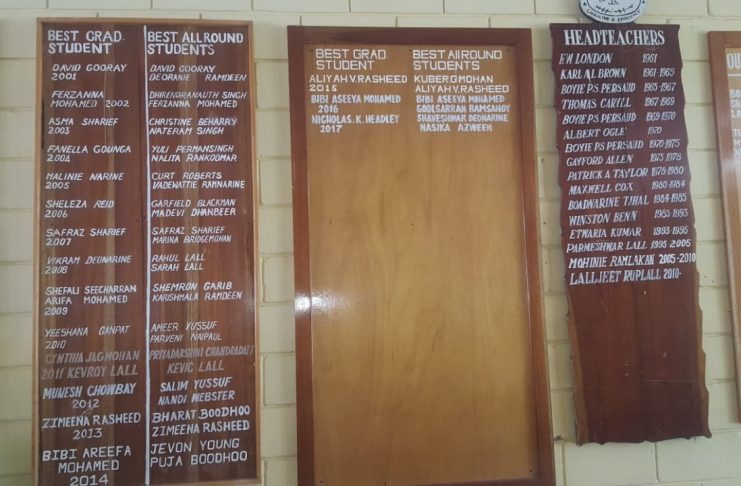 BEST GRAD. STUDENT
DAVID GOORAY
2001
FERZANNA
MOHAMED 2002
ASMA SHARIEF
2003
FANELLA GOUNGA
2004
MALINIE NARINE
2005
SHELEZA REID
2006
SAFRAZ SHARIEF
2007
VIKRAM DEONARINE
2008
SHEFALI SEECHARRAN
ARIFA MOHAMED
2009
YEESHANA GANPAT
2010
CYNTHIA JAGMOHAN
2011 KEVROY LALL
MUNESH CHOWBAY
2012
ZIMEENA RASHEED
2013
BIBI AREEFA
MOHAMED
2014
BEST ALLROUND
STUDENTS
DAVID GOORAY
DEORANIE RAMDEEN
DHIRENDRANAUTH SINGH
FERZANNA MOHAMED
CHRISTINE BEHARRY
NATERAM SINGH
YULI PERMANSINGH
NALITA RANKOOMAR
CURT ROBERTS
VADEWATTIE RAMNARINE
GARFIELD BLACKMAN
MADEVI DHANBEER
SAFRAZ SHARIEF
MARINA BRIDGEMOHAN
RAHUL LALL
SARAH LALL
SHEMRON GARIB
KARISHMALA RAMDEEN
AMEER YUSSUF
PARVENI NAIPAUL
PRIYADARSHINI CHANDRADATT
KEVIC LALL
SALIM YUSSUF
NANDI WEBSTER
BHARAT BOODHOO
ZIMEENA RASHEED
JEVON YOUNG
PUJA BOODHOO
BEST GRAD
STUDENT
ALIYAH V. RASHEED
2015
BIBI ASEEYA MOHAMED
2016
NICHOLAS. K. HEADLEY
2017
BEST AllROUND
STUDENTS
KUBER D MOHAN
ALIYAH V. RASHEED
BIBI ASEEYA MOHAMED
GOOLSARRAN RAMSAHOY
SHAVESHWAR DEONARINE
NASIKA AZWEEH
HEADTEACHERS
E'W LONDON 1961
KARL AL BROWN 1961 1965
BOYIE P.S PERSAUD 1965-1967
THOMAS CARYLL 1967 1969
BOYIE P.S PERSAUD 1969 1970
ALBERT OGLE 1970
BOYIE P.S PERSAUD 1970-1975
GAYFORD ALLEN 1975-1978
PATRICK A TAYLOR 1978-1980
MAXWELL COX 1980-1984
BOADNARINE TJHAL 1984-1985
WINSTON BENN 1985-1993
ETWARIA KUMAR 1993-1995
PARMESHWAR LALL 1995 2005
MOHINIE RAMLAKAN 2005-2010
LALLJEET RUPLALL 2010-